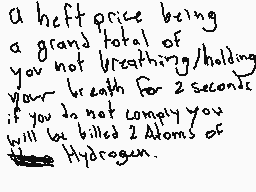 a heft price being
a grand total of
you not breathing/holding
your breath for 2 seconds
if you do not comply you
will be billed 2 Atoms of
Hydrogen.